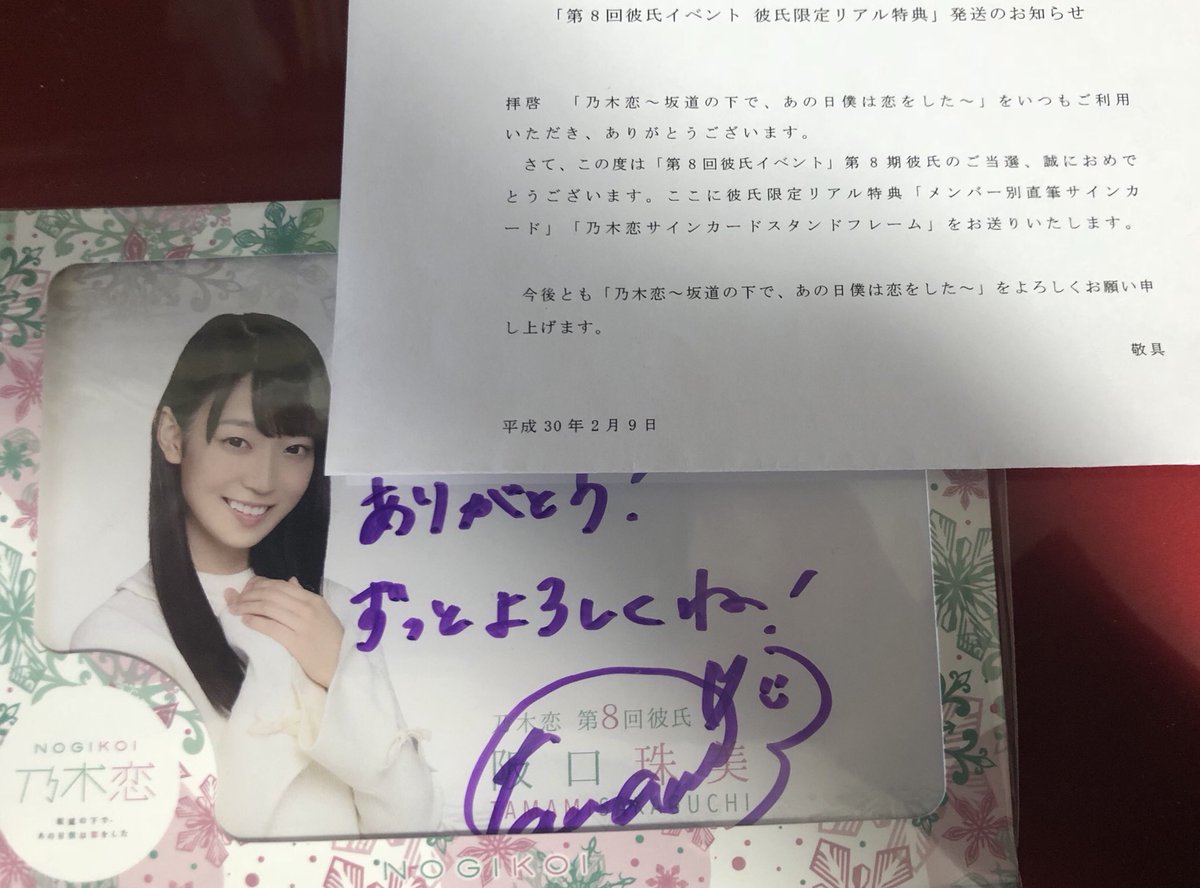 「第8回彼氏イベント 彼氏限定リアル特典」発送のお知らせ
拝啓 「乃木恋～坂道の下で、あの日僕は恋をした～」をいつもご利用
いただき、ありがとうございます。
さて、この度は「第8回彼氏イベント」第8期彼氏のご当選、誠におめで
とうございます。ここに彼氏限定リアル特典「メンバー別直筆サインカ
ード」「乃木恋サインカードスタンドフレーム」をお送りいたします。
今後とも「乃木恋～坂道の下で、あの日僕は恋をした～」をよろしくお願い申
し上げます。
敬具
平成30年2月9日
ありがとう!
ずっとよろしくね!
乃木恋 第8回彼氏
阪口珠美
Tamami
NOGIKOI
乃木恋
坂道の下で、
あの日僕は恋をした
NOGIKOI